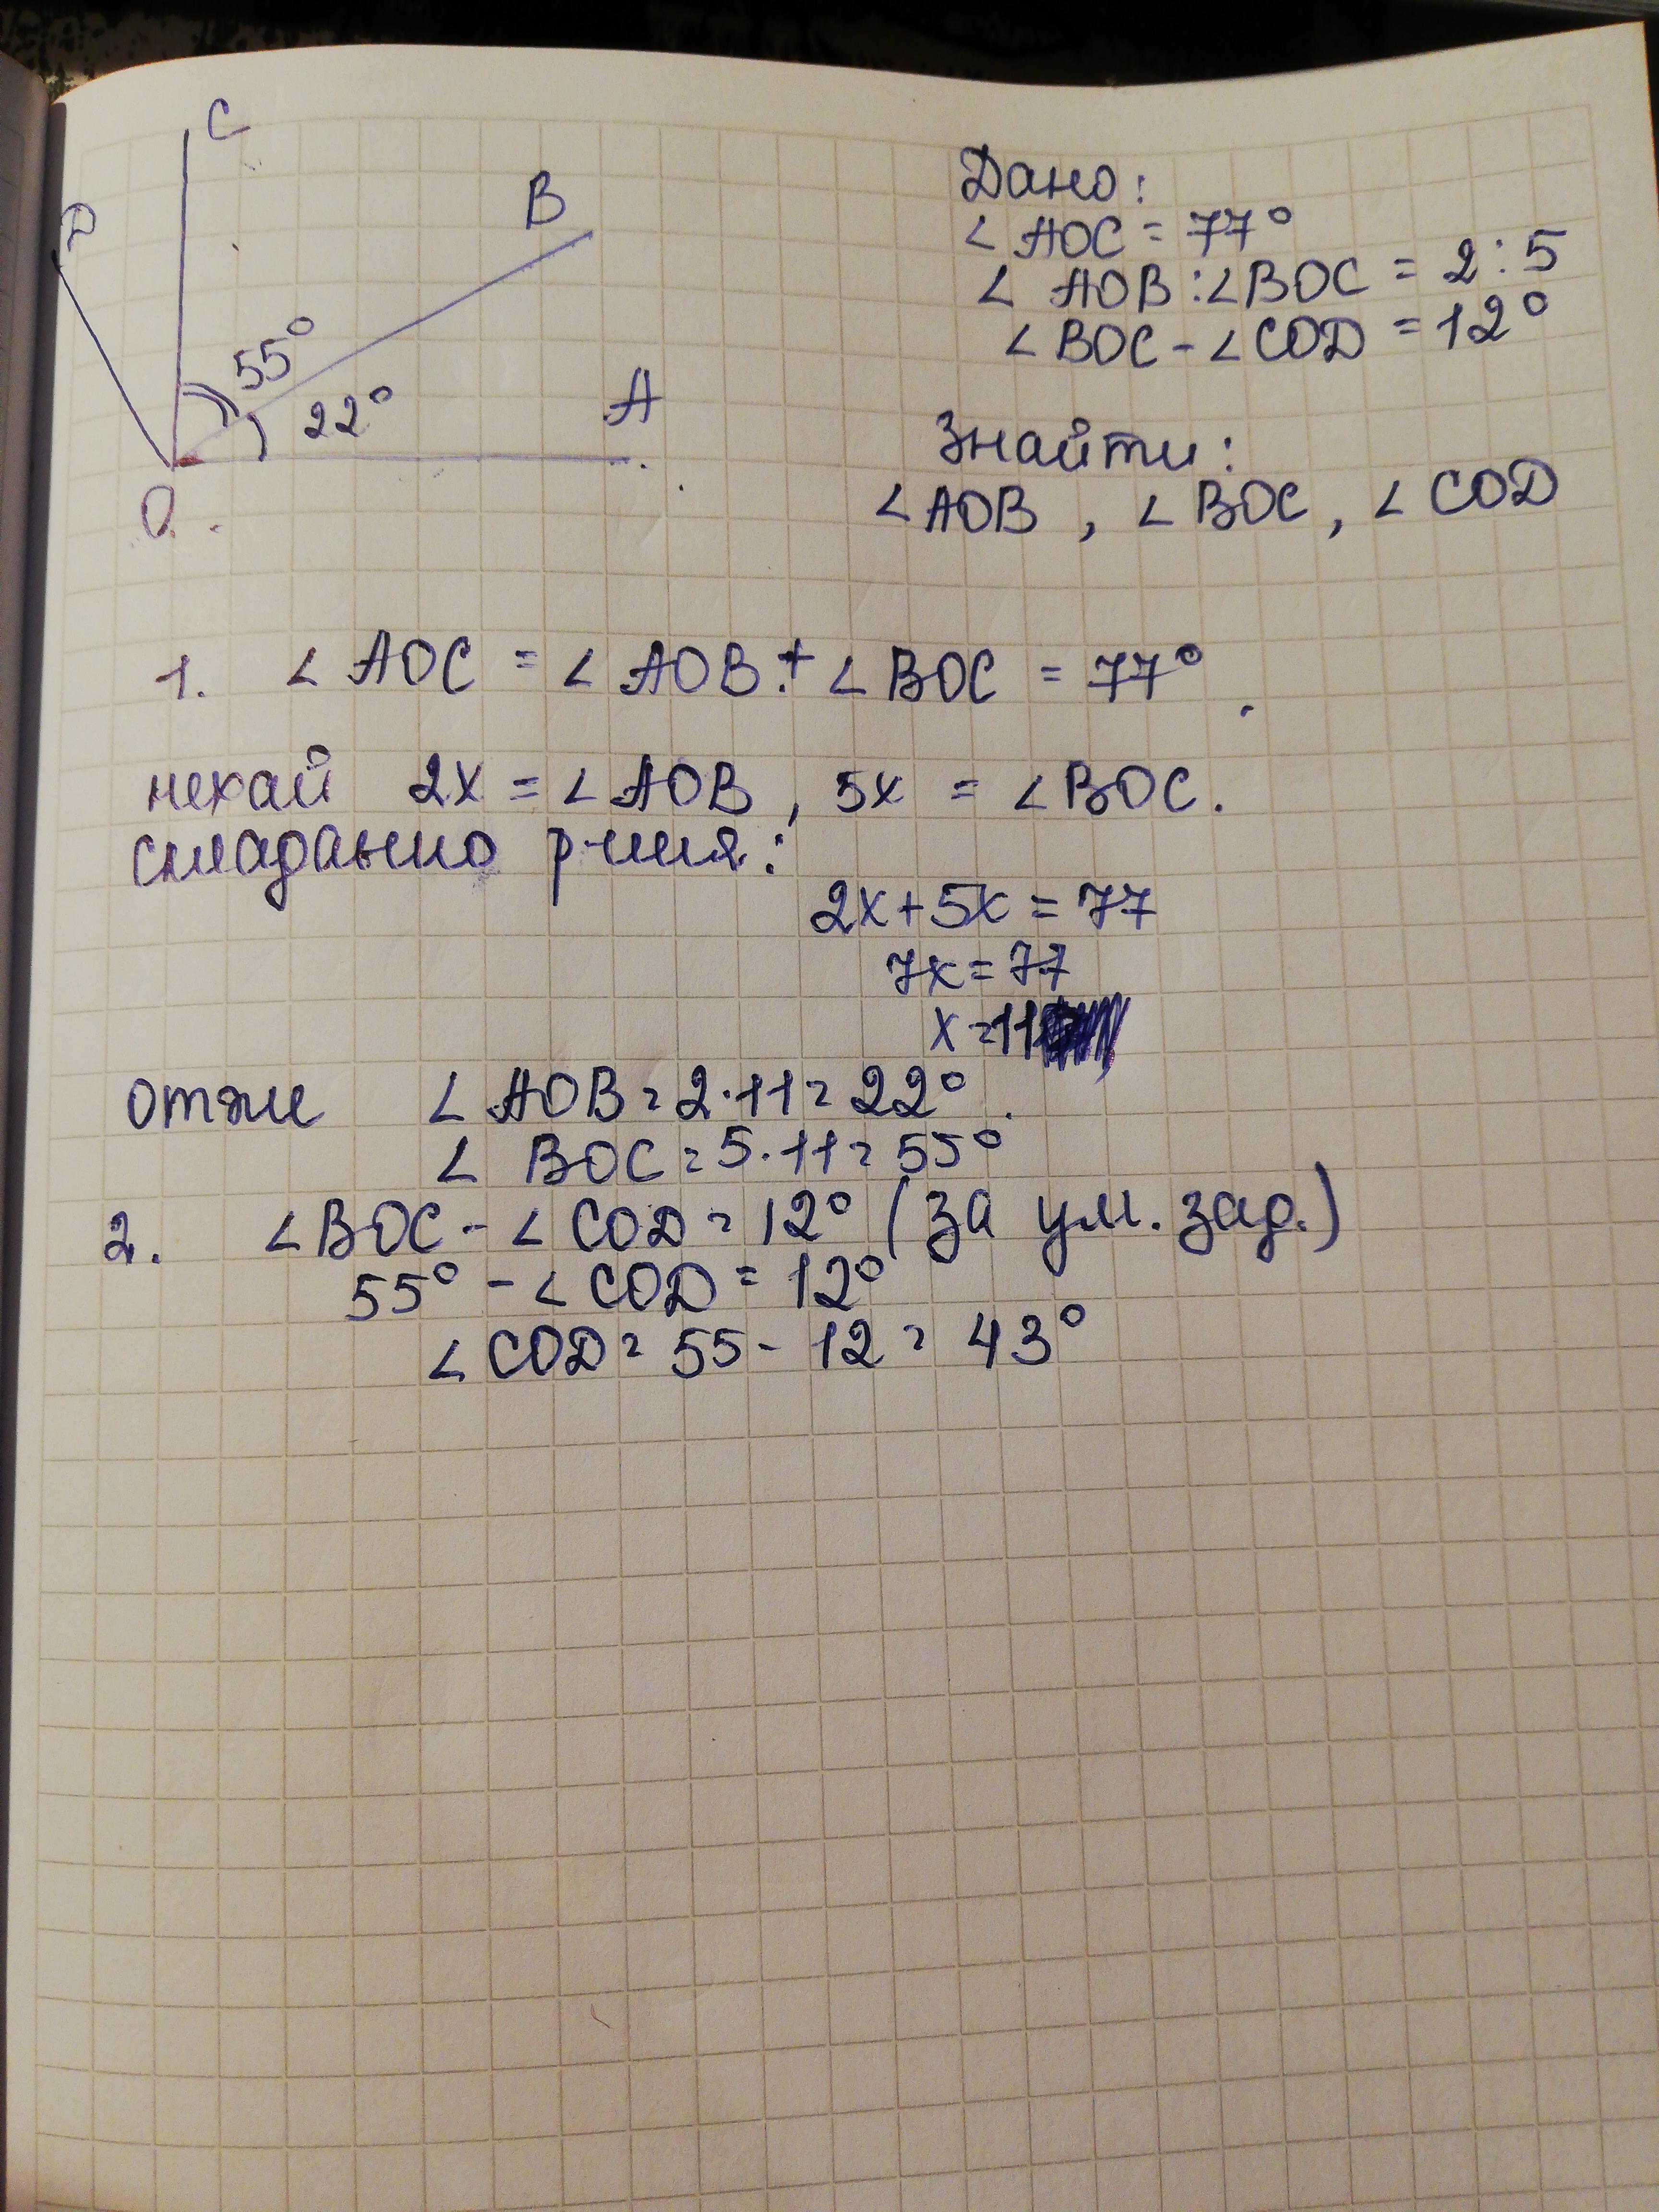 C
B
D
55°
22°
A
O
Дано:
∠AOC = 77°
∠AOB:∠BOC = 2:5
∠BOC - ∠COD = 12°
Знайти:
∠AOB, ∠BOC, ∠COD
1. ∠AOC = ∠AOB + ∠BOC = 77°.
нехай 2x = ∠AOB, 5x = ∠BOC.
складаємо р-ння:
2x+5x = 77
7x = 77
x = 11
отже ∠AOB = 2·11 = 22°.
∠BOC = 5·11 = 55°
2. ∠BOC - ∠COD = 12° (за ум. зад.)
55° - ∠COD = 12°
∠COD = 55 - 12 = 43°